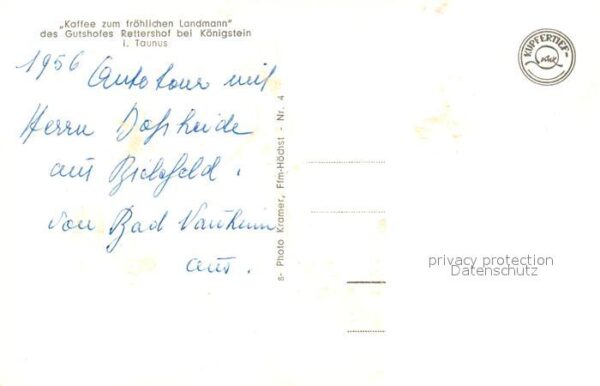 „Kaffee zum fröhlichen Landmann"
des Gutshofes Rettershof bei Königstein
i. Taunus
1956 Autotour mit
Herrn Doßheide
aus Bielefeld.
von Bad Nauheim
aus.
8- Photo Kramer, Ffm-Höchst - Nr. 4
KUPFERTIEF-
privacy protection
Datenschutz